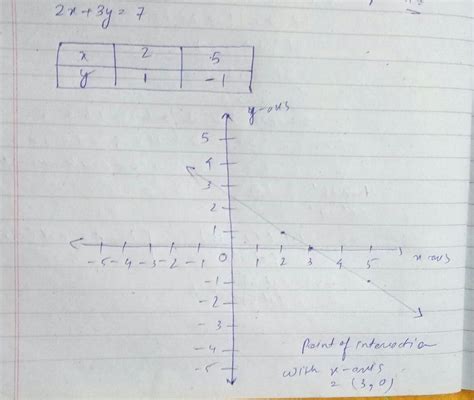 2x + 3y = 7
x 2 5
y 1 -1
y-axis
5
4
3
2
1
-5 -4 -3 -2 -1 0 1 2 3 4 5 x-axis
-1
-2
-3
-4
-5
Point of intersection
with x-axis
2 (3,0)